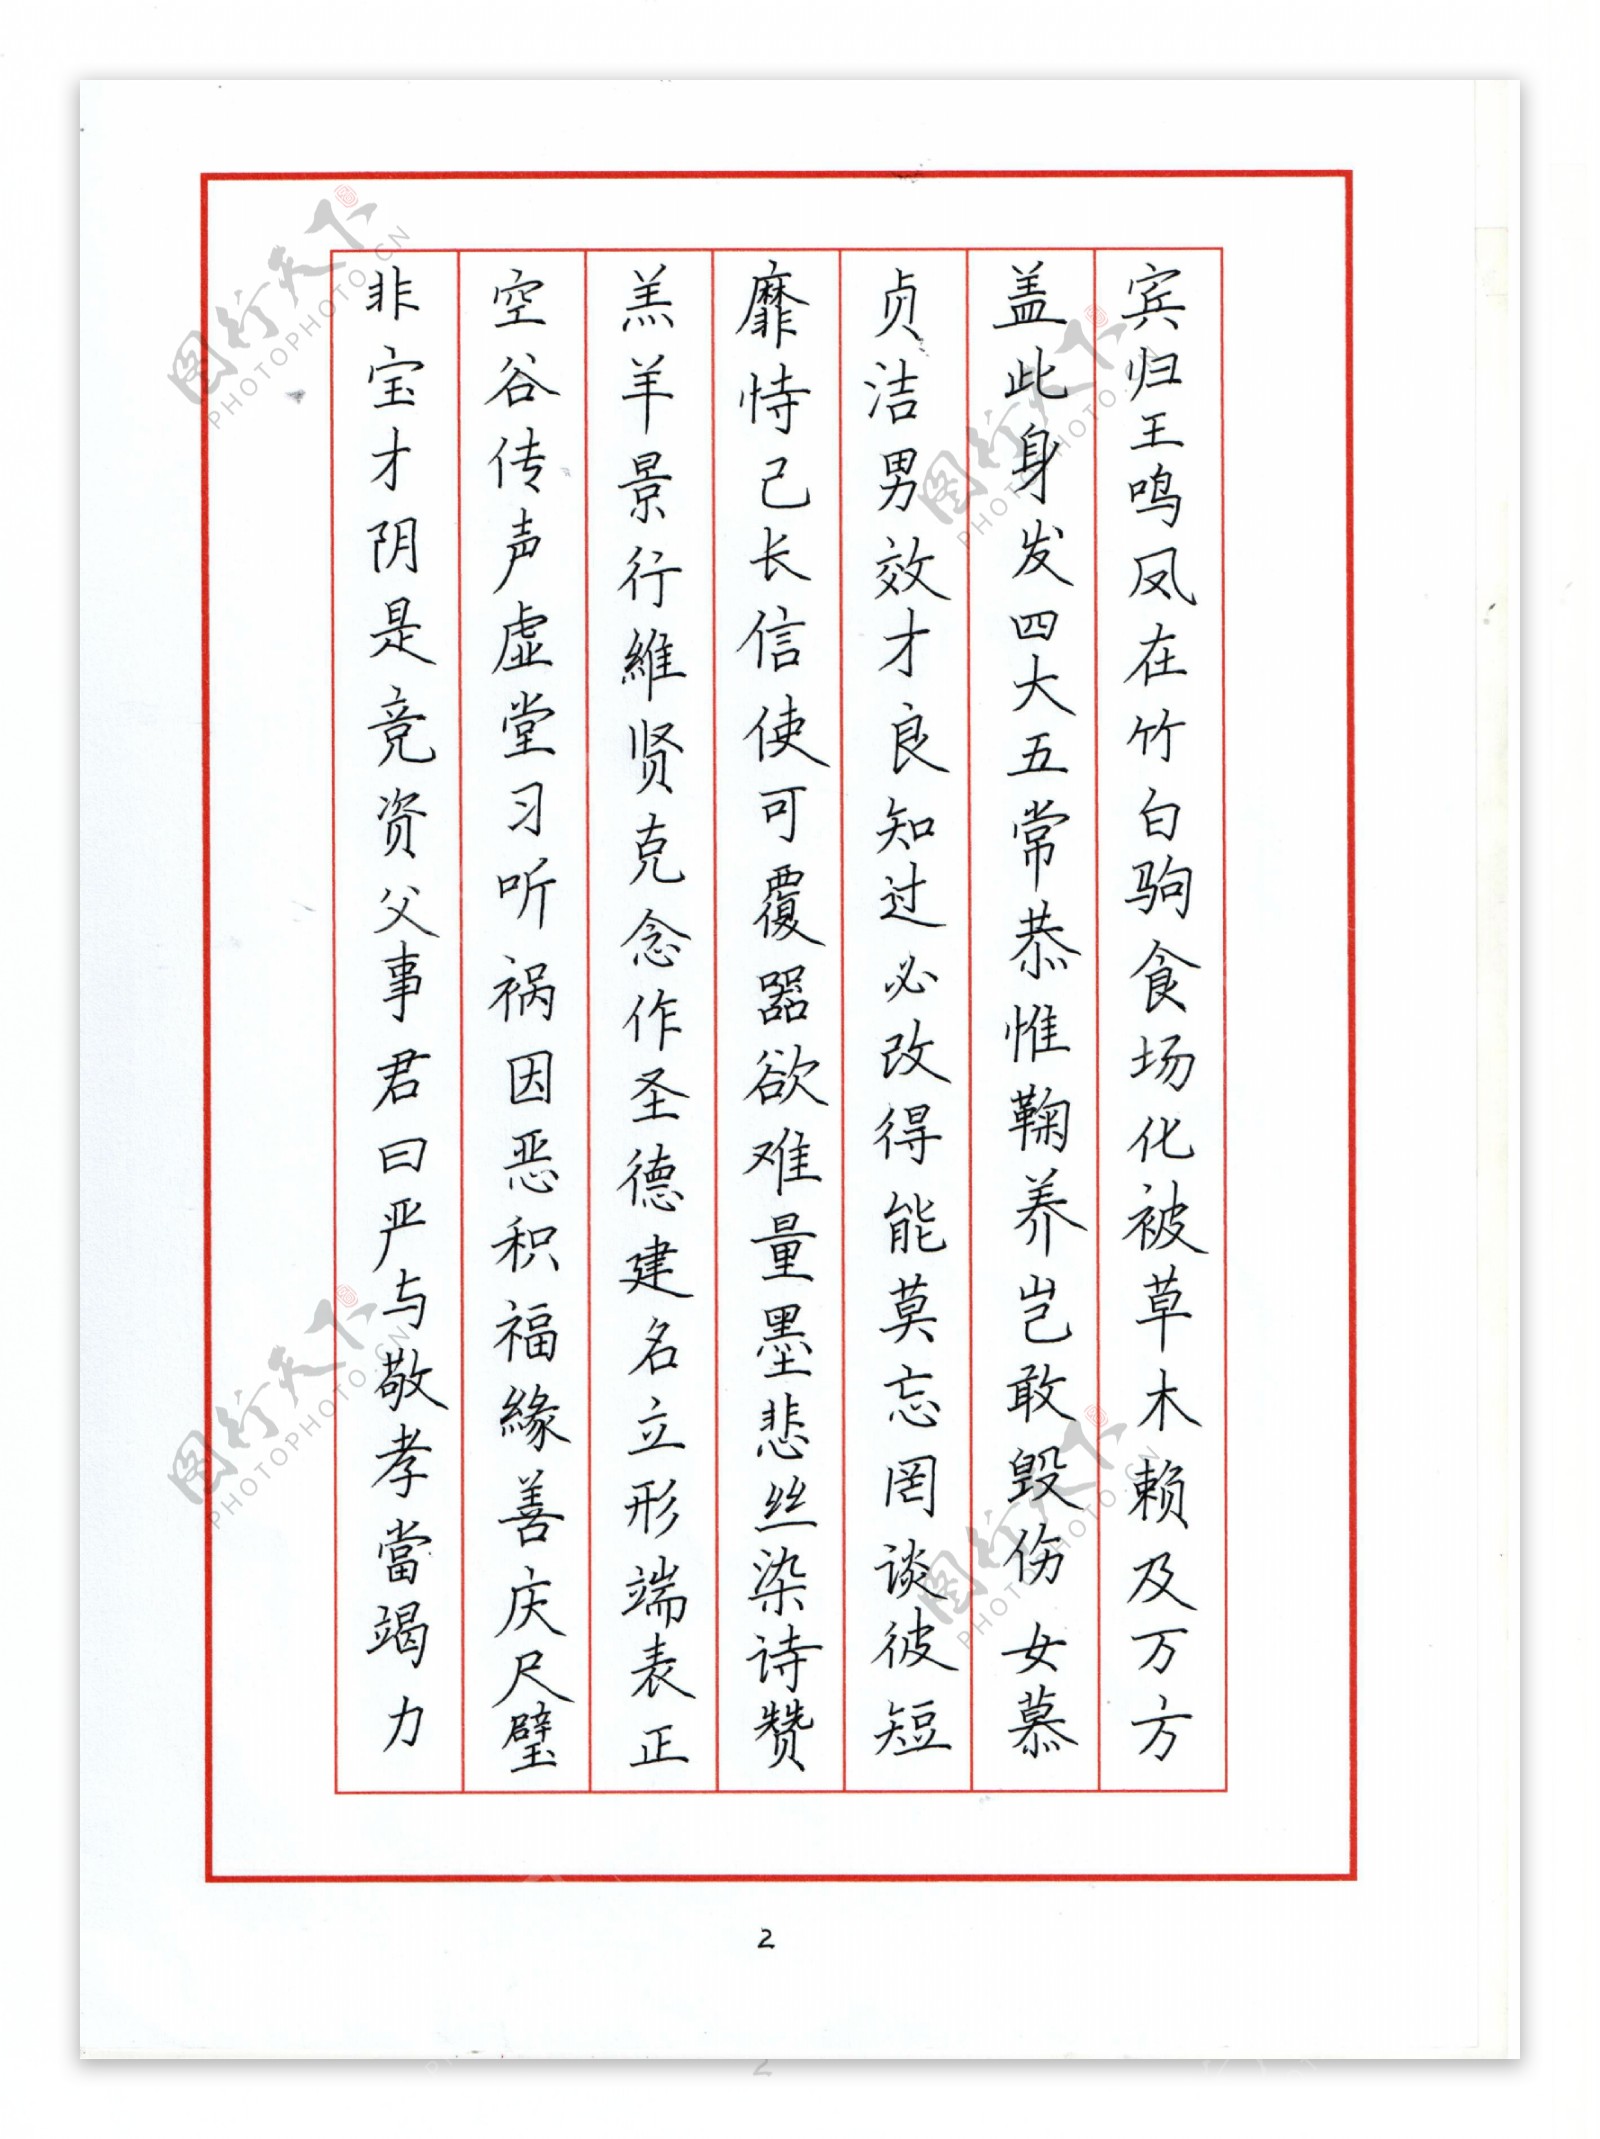 宾归王鸣凤在竹白驹食场化被草木赖及万方
盖此身发四大五常恭惟鞠养岂敢毁伤女慕
贞洁男效才良知过必改得能莫忘罔谈彼短
靡恃己长信使可覆器欲难量墨悲丝染诗赞
羔羊景行維贤克念作圣德建名立形端表正
空谷传声虚堂习听祸因恶积福緣善庆尺璧
非宝才阴是竞资父事君曰严与敬孝當竭力
2
图行天下
PHOTOPHOTO.CN
图行天下
PHOTOPHOTO.CN
图行天下
PHOTOPHOTO.CN
图行天下
PHOTOPHOTO.CN